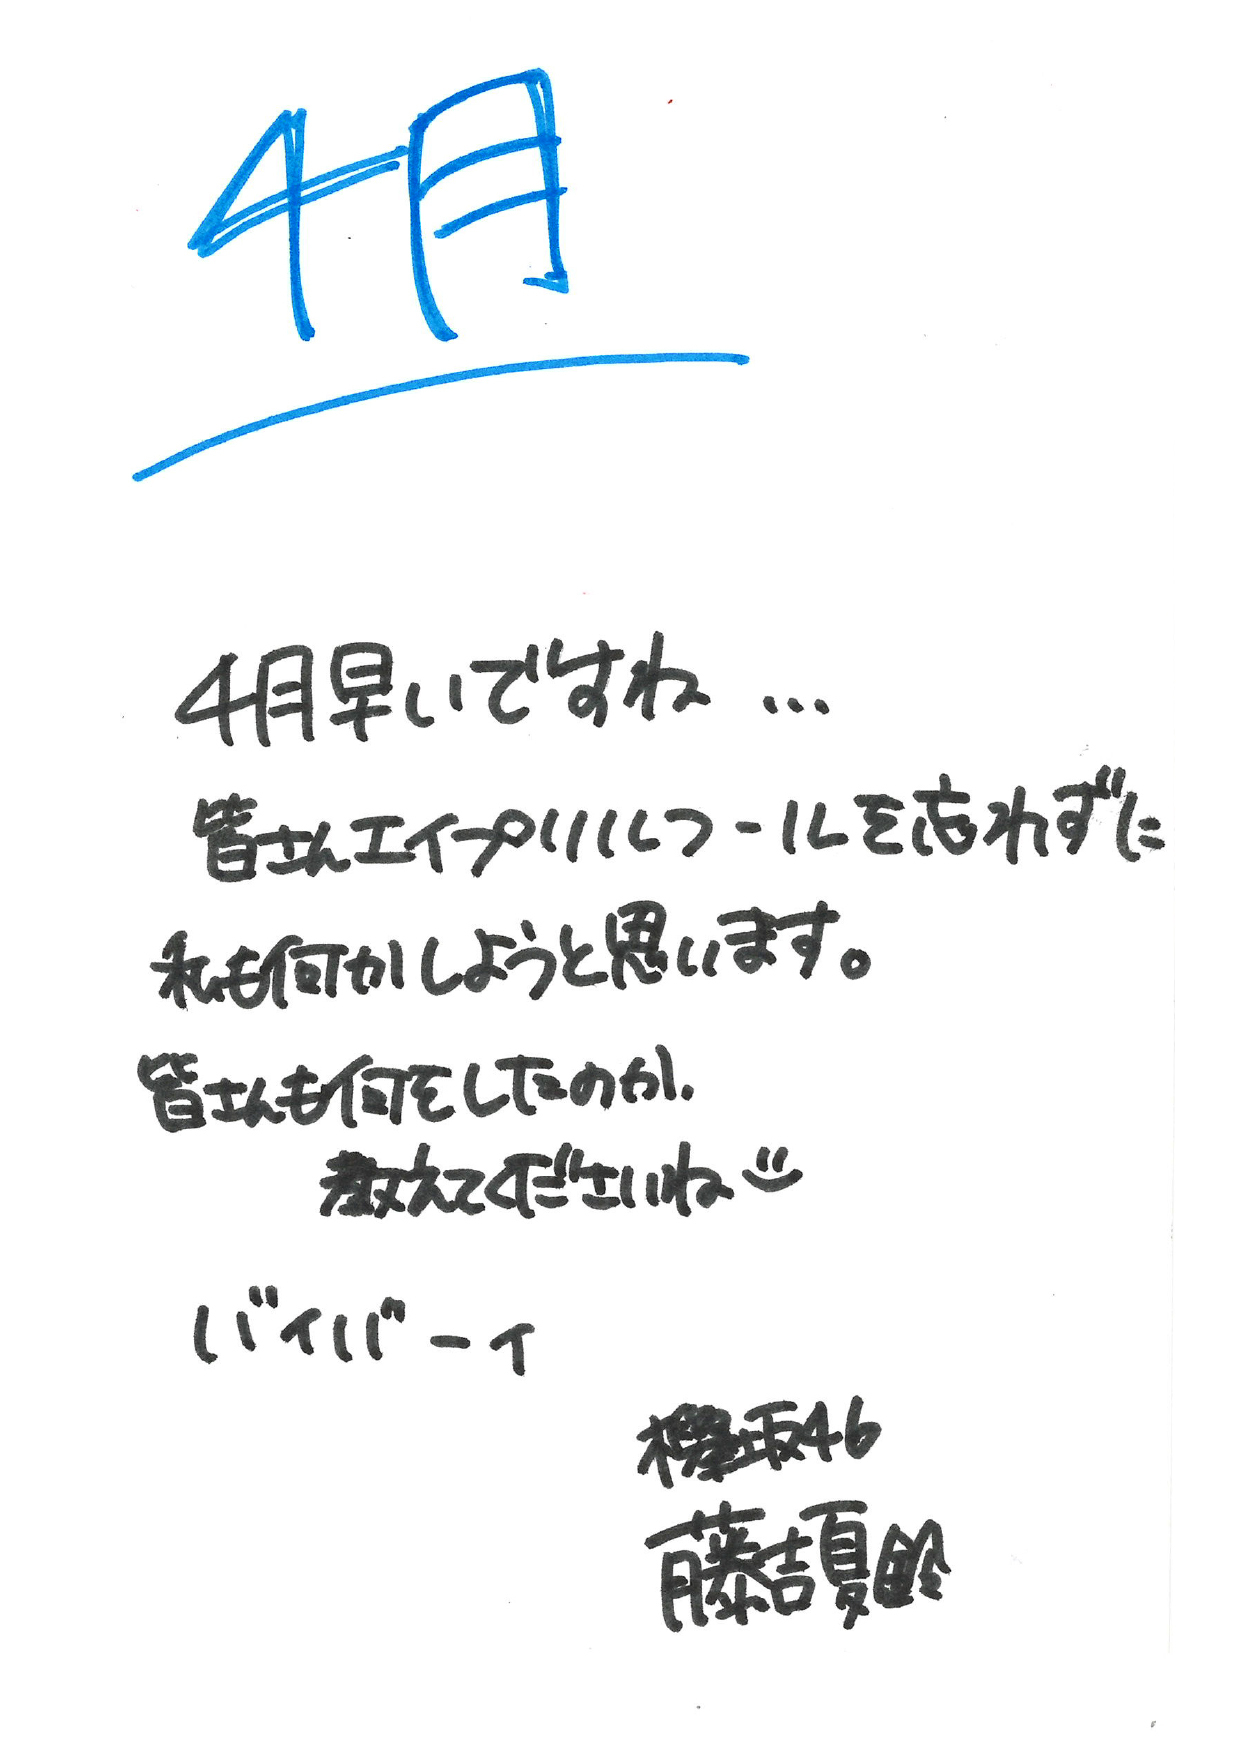 4月
4月早いですね…
皆さんエイプリルフールを忘れずに
私も何かしようと思います。
皆さんも何をしたのか、
教えてくださいね
バイバーイ
欅坂46
藤吉夏鈴